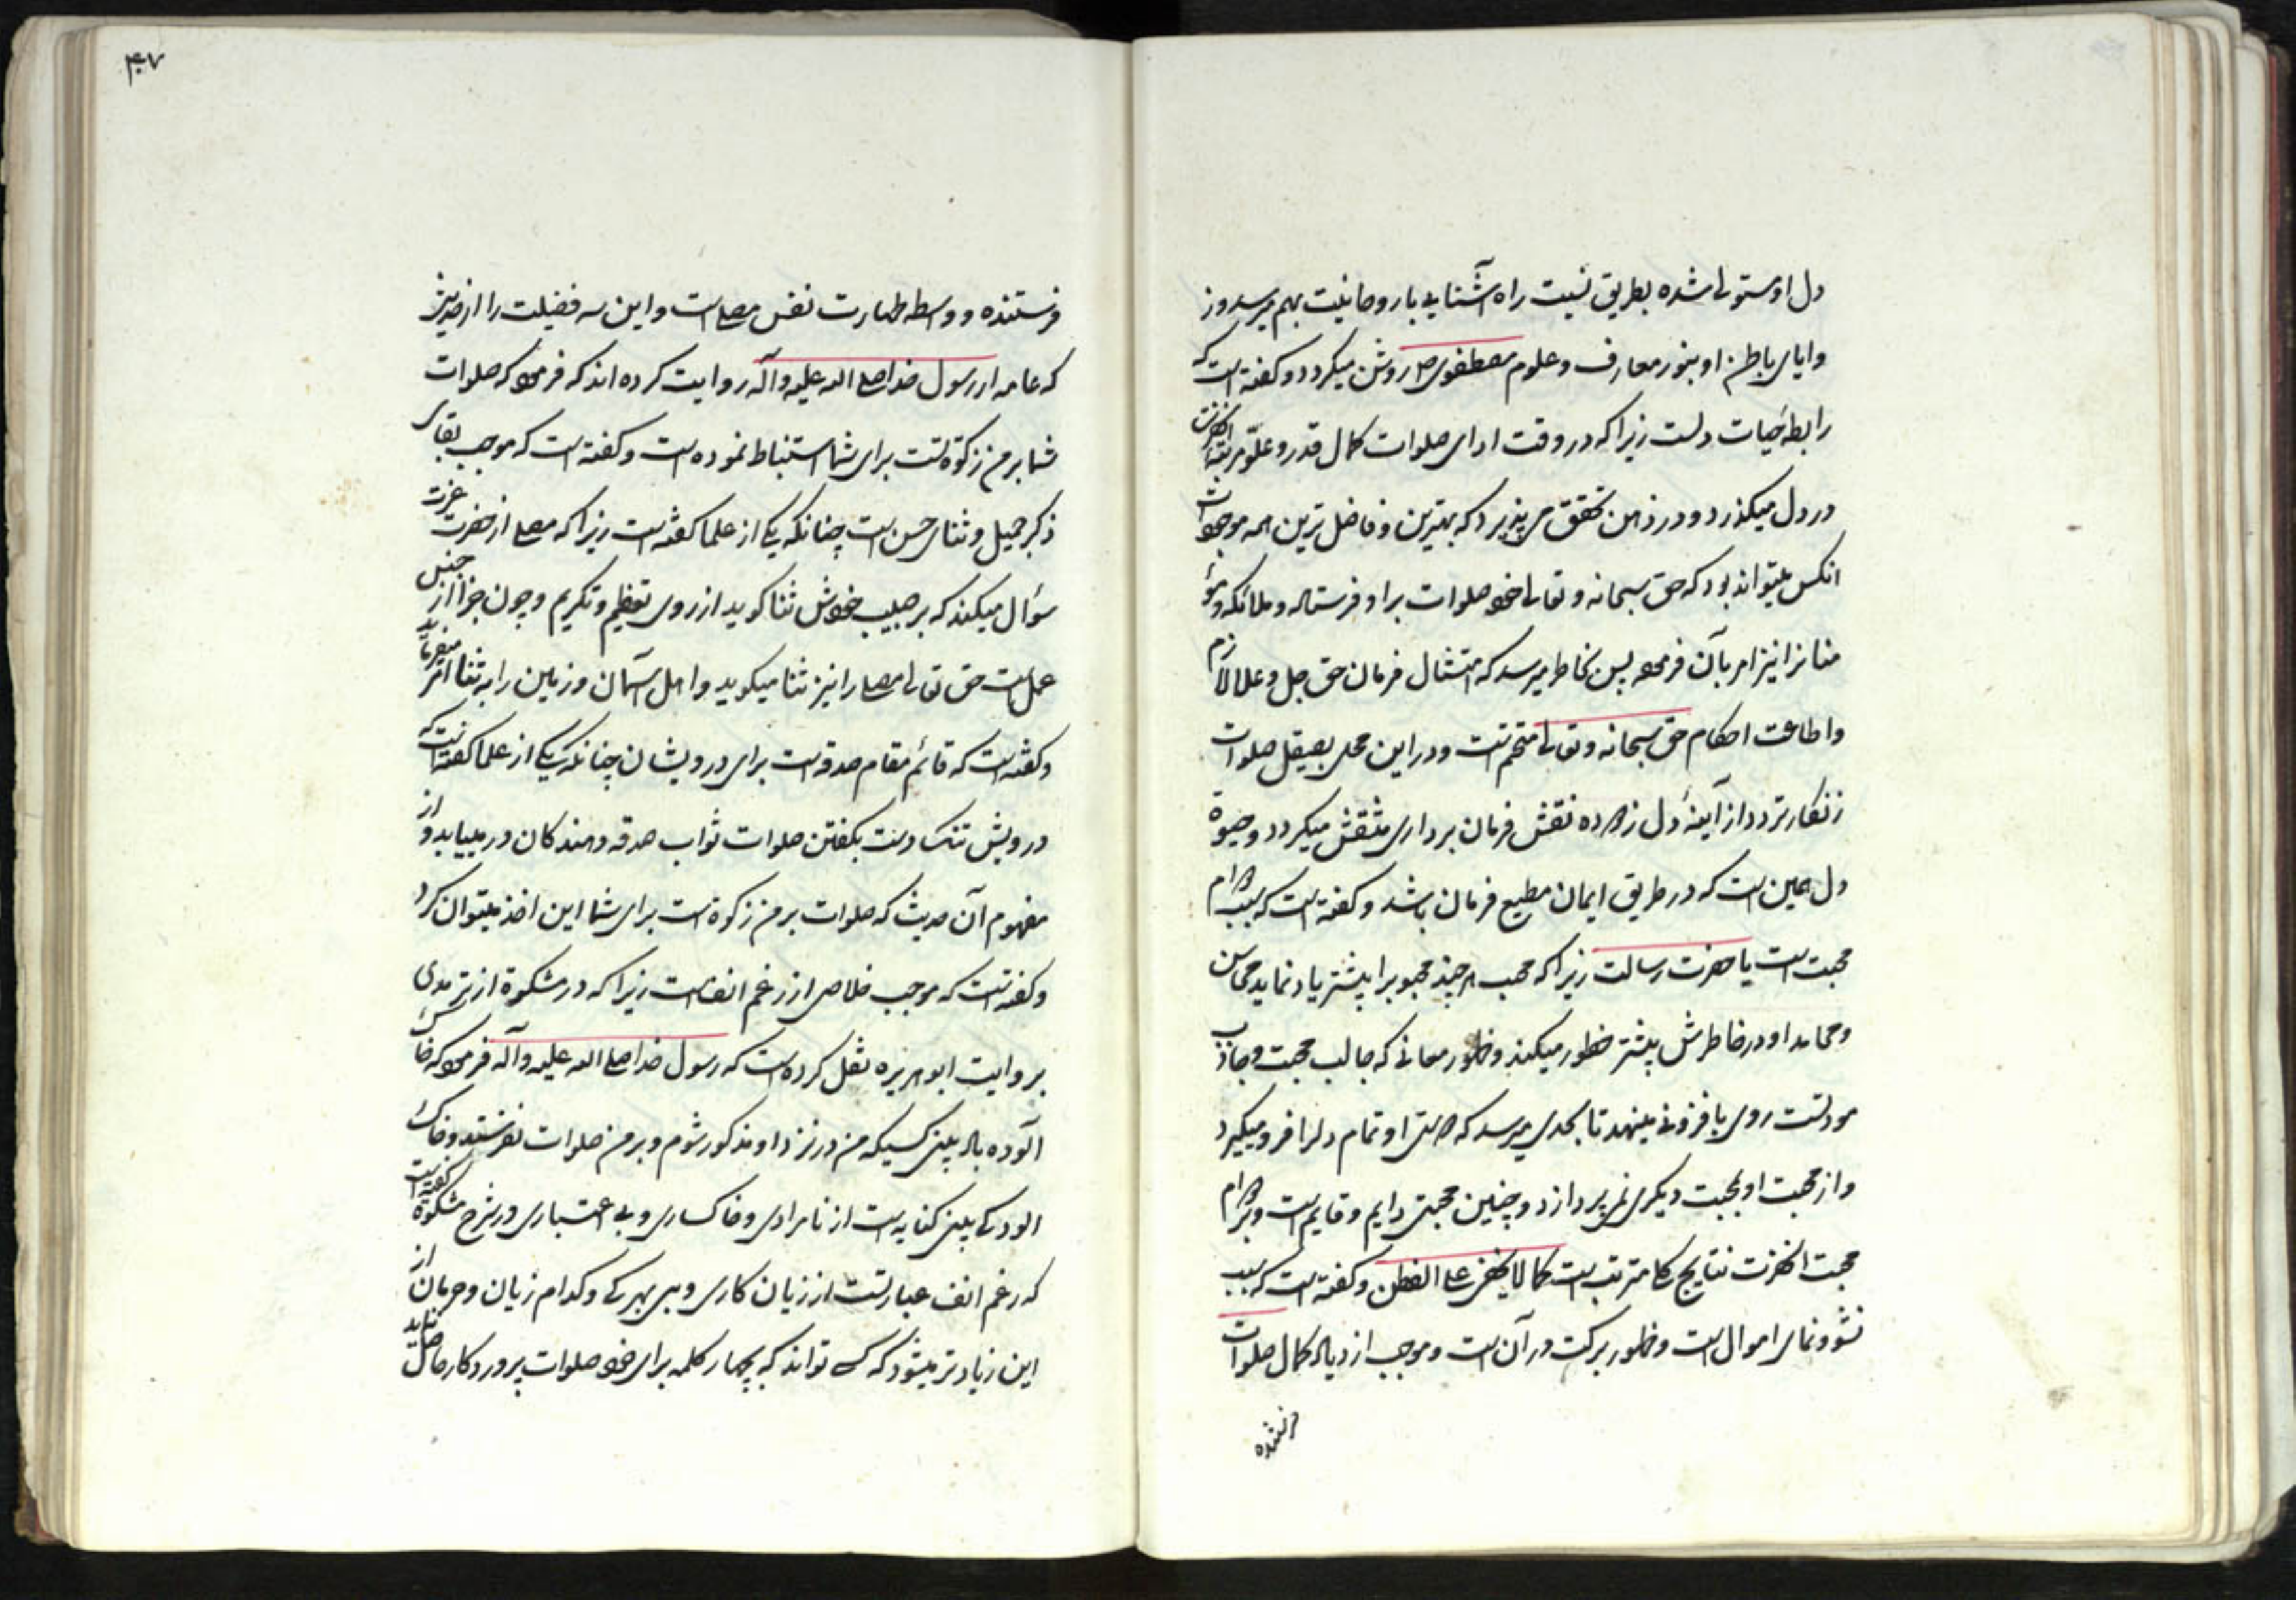 دل او مستولی شده بطریق نسبت راه آشنایی با روحانیت بهم میرسد و ز
وایای باطن او بنور معارف و علوم مصطفوی ص روشن میگردد و گفته است که
رابطه حیات دلست زیرا که در وقت ادای صلوات کمال قدر و علو مرتبه آنحضرت
در دل میگذرد و در ذهن تحقق می پذیرد که بهترین و فاضل ترین همه موجودات
آنکس میتواند بود که حق سبحانه و تعالی خود صلوات بر او فرستاده و ملائکه و مؤ
منانرا نیز امر بآن فرموده پس بخاطر میرسد که امتثال فرمان حق جل و علا لازم
و اطاعت احکام حق سبحانه و تعالی متحتم است و در این محل بصیقل صلوات
زنگار تردد از آینهٔ دل زدوده نقش فرمان برداری منقش میگردد و حیوة
دل همین است که در طریق ایمان مطیع فرمان باشد و گفته است که سبب دوام
محبت است با حضرت رسالت زیرا که محب هر چند محبوبرا بیشتر یاد نماید محاسن
و محامد او در خاطرش بیشتر خطور میکند و خطور معانی که جالب محبت و جاذب
مودتست روی بافزونی مینهد تا بحدی میرسد که دوستی او تمام دلرا فرو میگیرد
و از محبت او بمحبت دیگری نمی پردازد و چنین محبتی دایم و قایم است و بر دوام
محبت آنحضرت نتایج کلی مترتب است کما لا یخفی علی الفطن و گفته است که سبب
نشو و نمای اموال است و ظهور برکت در آن است و موجب ازدیاد کمال صلوات
فرستنده
۴۰۷
فرستنده و واسطه طهارت نفس مصلی است و این سه فضیلت را از حدیثی
که عامه از رسول خدا صلی الله علیه و آله روایت کرده اند که فرمود که صلوات
شما بر من زکوة است برای شما استنباط نموده است و گفته است که موجب بقای
ذکر جمیل و ثنای حسن است چنانکه یکی از علما گفته است زیرا که مصلی از حضرت عزت
سؤال میکند که بر حبیب خویش ثنا گوید از روی تعظیم و تکریم و چون جزا از جنس
عمل است حق تعالی مصلی را نیز ثنا میگوید و اهل آسمان و زمین را به ثنا امر میفرماید
و گفته است که قائم مقام صدقه است برای درویشان چنانکه یکی از علما گفته است که
درویش تنک دست بگفتن صلوات ثواب صدقه دهندگان در مییابد و از
مفهوم آن حدیث که صلوات بر من زکوة است برای شما این اخذ میتوان کرد
و گفته است که موجب خلاصی از رغم انف است زیرا که در مشکوة از ترمدی
بروایت ابو هریره نقل کرده است که رسول خدا صلی الله علیه و آله فرمود که خاک
آلوده باد بینی کسیکه من در نزد او مذکور شوم و بر من صلوات نفرستد و خاک
الودگی بینی کنایه است از نامرادی و خاکساری و بی اعتباری در شرح مشکوة گفته است
که رغم انف عبارتست از زیان کاری و بی بهرگی و کدام زیان و حرمان از
این زیاد تر میشود که کسی تواند که بچهار کلمه برای خود صلوات پروردگار حاصل نماید